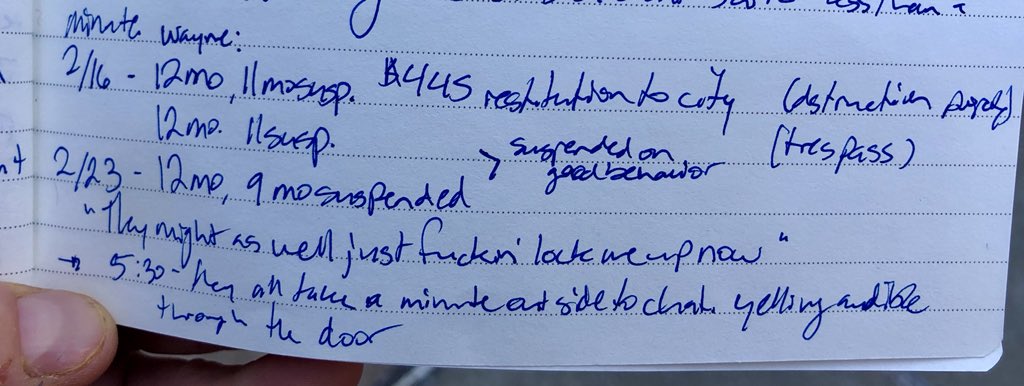 less than a
minute. Wayne:
2/16 - 12mo, 11mosusp. $445 restitution to city (dstruction property)
12mo. 11susp. (trespass)
→ suspended on
good behavior
2/23 - 12mo, 9 mo suspended
"They might as well just fuckin' lock me up now"
→ 5:30 - they all take a minute outside to chat. yelling audible
through the door